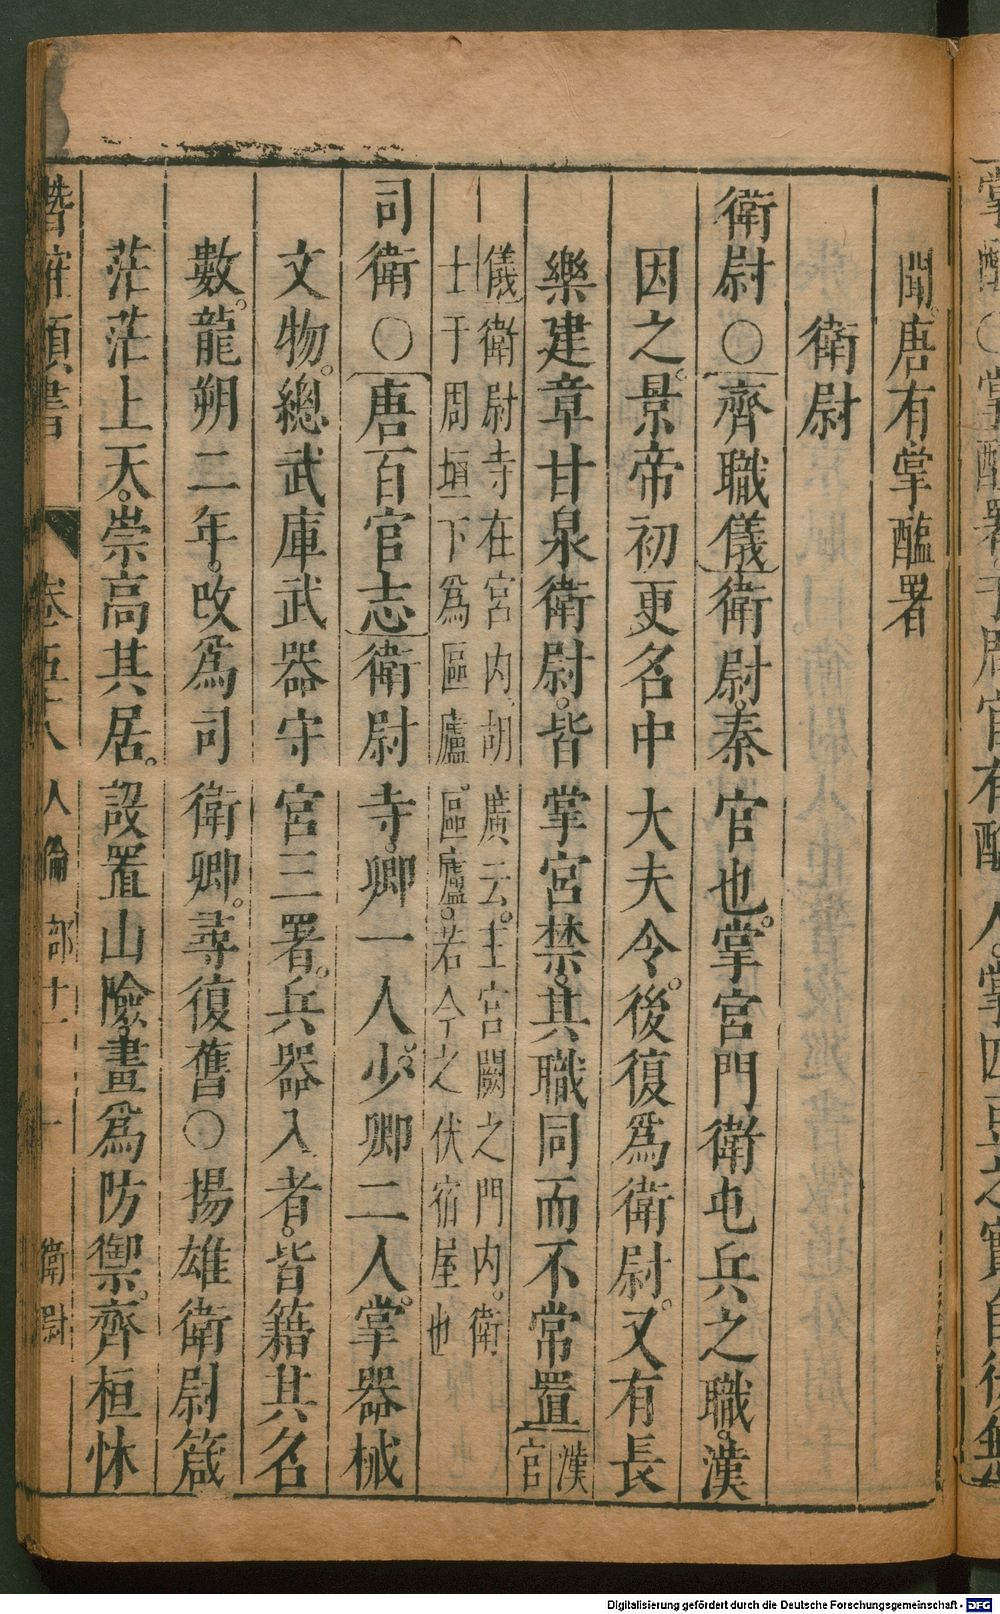 聞。唐有掌醢署
衛尉
衛尉〇齊職儀衛尉。秦官也。掌宮門衛屯兵之職。漢
因之。景帝初更名中大夫令。後復爲衛尉。又有長
樂建章甘泉衛尉。皆掌宮禁。其職同而不常置漢官
儀衛尉寺在宮内。胡廣云。主宮闕之門内。衛
士于周垣下爲區廬。區廬。若今之伏宿屋也
司衛〇唐百官志衛尉寺。卿一人。少卿二人。掌器械
文物。總武庫武器守宮三署。兵器入者。皆籍其名
數。龍朔二年。改爲司衛卿。尋復舊〇揚雄衛尉箴
茫茫上天。崇高其居。設置山險。畫爲防禦。齊桓怵
潛確類書 卷五十八 人倫部十一 十 衛尉
Digitalisierung gefördert durch die Deutsche Forschungsgemeinschaft - DFG